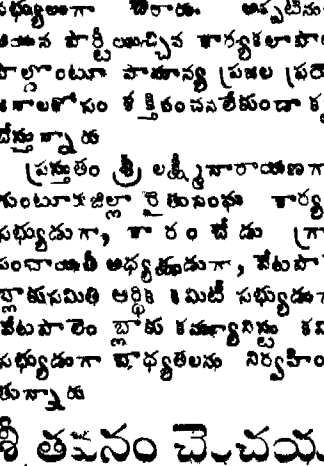 సభ్యులుగా చేరారు అప్పటినుం
ఆయన పార్టీ యిచ్చిన కార్యకలాపాల
పాల్గొంటూ సామాన్య ప్రజల ప్రయో
జనాలకోసం శక్తివంచనలేకుండా కృ
చేస్తున్నారు
ప్రస్తుతం శ్రీ లక్ష్మీనారాయణగా
గుంటూరుజిల్లా రైతుసంఘం కార్యవ
సభ్యుడుగా, కారంచేడు గ్రా
పంచాయితీ అధ్యక్షుడుగా, వేటపాల
బ్లాకుసమితి ఆర్థిక కమిటీ సభ్యుడుగా
వేటపాలెం బ్లాకు కమ్యూనిస్టు కమి
సభ్యుడుగా బాధ్యతలను నిర్వహిం
తున్నారు
శ్రీ చెంచయ